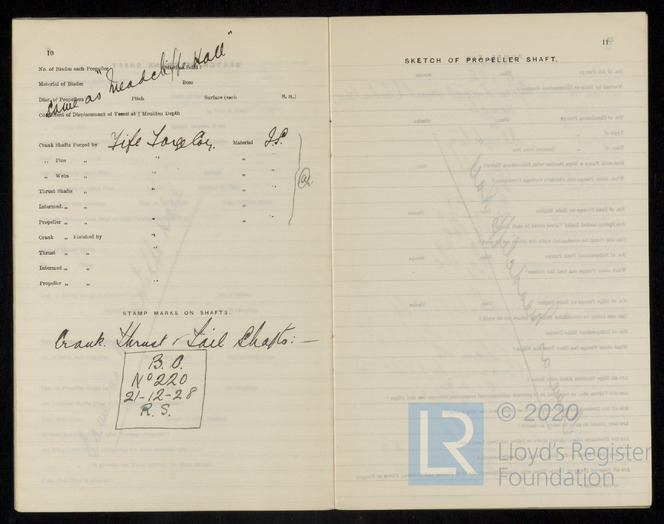 10
"Meadcliffe Hall"
No. of Blades each Propeller
Material of Blades Boss
same as
Diar. of Propellers Pitch Surface (each S. ft.)
Coefficient of Displacement of Vessel at ¾ Moulded Depth
Crank Shafts Forged by Fife Forge Coy. Material I.S.
„ Pins „ „ „ „
„ Webs „ „ „ „
Thrust Shafts „ „ „ „
Intermed. „ „ „ „ „
Propeller „ „ „ „ „
Crank „ Finished by „
Thrust „ „ „
Intermed „ „ „
Propeller „ „ „
STAMP MARKS ON SHAFTS.
Crank Thrust & Tail Shafts:—
B.O.
No 220
21-12-28
R.S.
11
SKETCH OF PROPELLER SHAFT.
LR © 2020
Lloyd's Register
Foundation